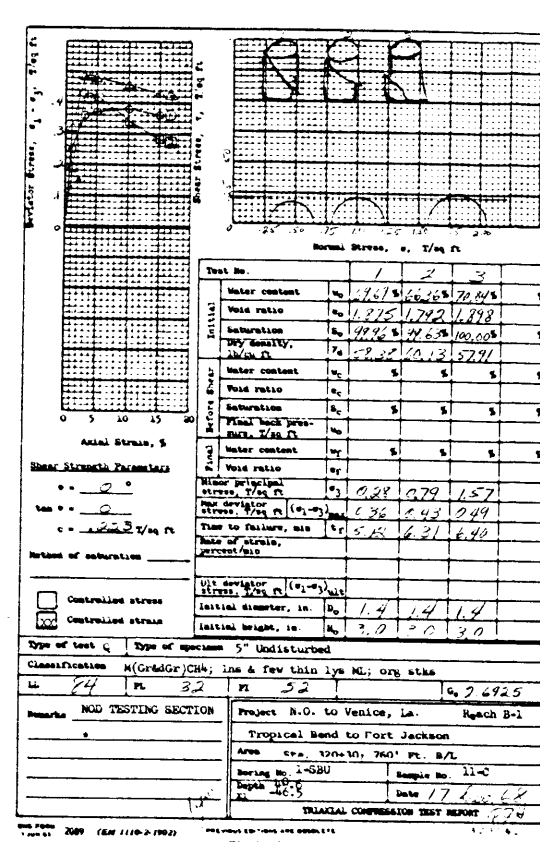 Deviator Stress, σ1 - σ3, T/sq ft
.4
.3
0
Shear Stress, τ, T/sq ft
.25 .50 .75 1.0 1.25 1.50
Normal Stress, σ, T/sq ft
0 5 10 15 20
Axial Strain, %
Shear Strength Parameters
φ = 0 °
tan φ = 0
c = .223 T/sq ft
Method of saturation
Controlled stress
Controlled strain
Test No. 1 2 3
Initial
Water content w₀ 69.67 % 66.36 % 70.84 %
Void ratio e₀ 1.875 1.792 1.898
Saturation S₀ 99.96 % 99.63 % 100.00 %
Dry density, lb/cu ft γd 58.38 60.13 57.91
Before Shear
Water content wc % % %
Void ratio ec
Saturation Sc % % %
Final back pressure, T/sq ft u₀
Final
Water content wf % % %
Void ratio ef
Minor principal stress, T/sq ft σ3 0.28 0.79 1.57
Max deviator stress, T/sq ft (σ1-σ3)max 0.36 0.43 0.49
Time to failure, min tf 6.31 6.40
Rate of strain, percent/min
Ult deviator stress, T/sq ft (σ1-σ3)ult
Initial diameter, in. D₀ 1.4 1.4 1.4
Initial height, in. H₀ 3.0 3.0 3.0
Type of test Q Type of specimen 5" Undisturbed
Classification M(Gr&dGr)CH4; lns & few thin lys ML; org stks
LL 84 PL 32 PI 52 G₀ 2.6925
Remarks NOD TESTING SECTION
Project N.O. to Venice, La. Reach B-1
Tropical Bend to Fort Jackson
Area Sta. 320+30; 760' Ft. B/L
Boring No. 1-SBU Sample No. 11-C
Depth El -46.5 Date 17 68
TRIAXIAL COMPRESSION TEST REPORT
ENG FORM 2089 (EM 1110-2-1902) PREVIOUS EDITIONS ARE OBSOLETE